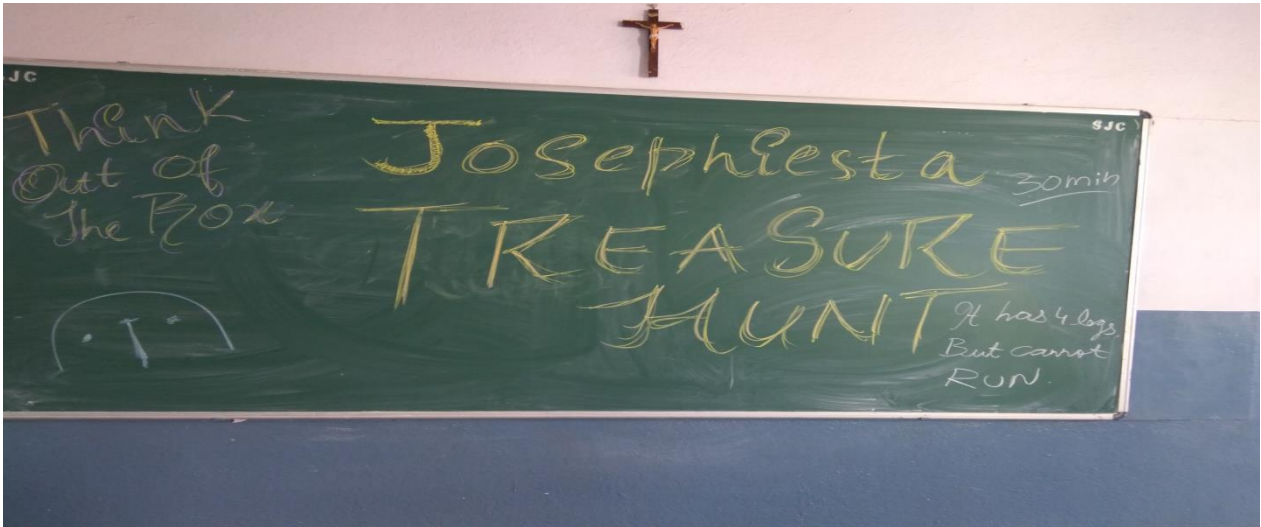 JC
SJC
Think
Out of
The Box
Josephiesta
30min
TREASURE
HUNT
It has 4 legs
But cannot
RUN.